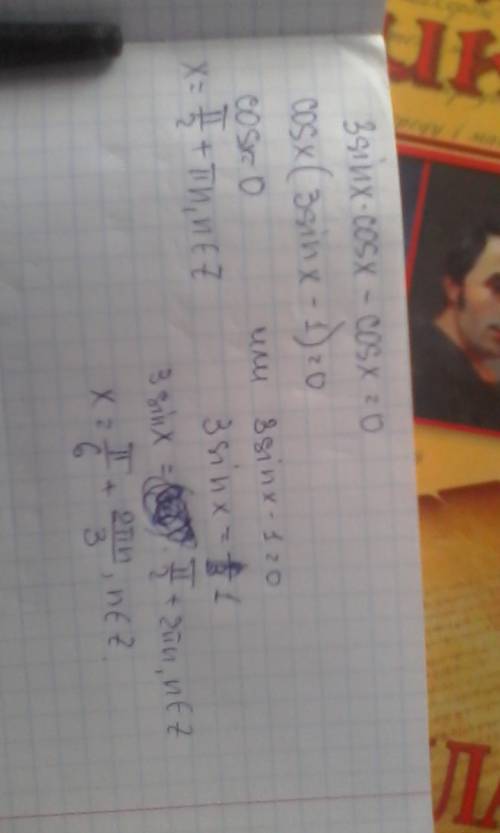 3sinx·cosx - cosx = 0
cosx(3sinx - 1) = 0
cosx=0 или 3sinx - 1 = 0
x = π/2 + πn, n ∈ Z
3sinx = 1
3sinx = π/2 + 2πn, n ∈ Z
x = π/6 + 2πn/3, n ∈ Z.